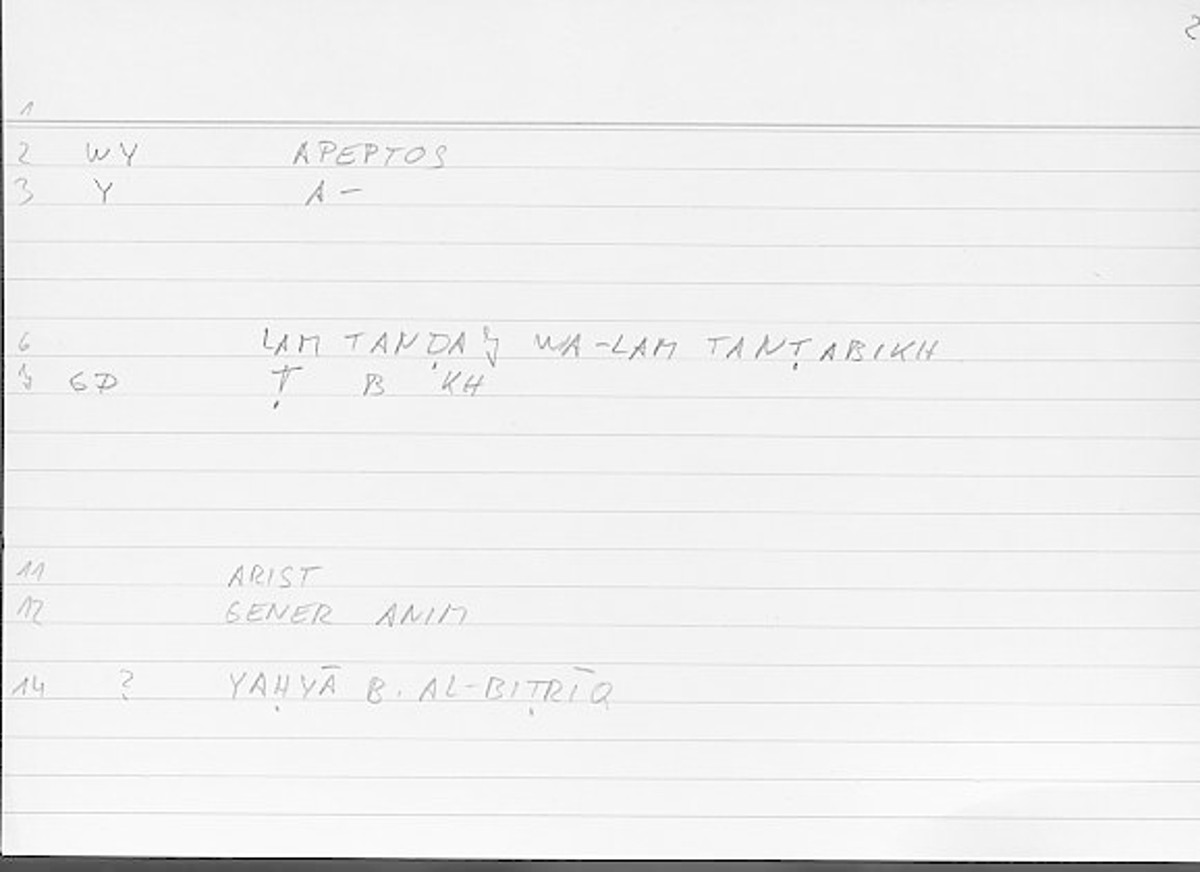 2
1
2 WY APEPTOS
3 Y A –
6 LAM TANḌAJ WA-LAM TANṬABIKH
7 GD Ṭ B KH
11 ARIST
12 GENER ANIM
14 ? YAḤYĀ B. AL-BIṬRĪQ